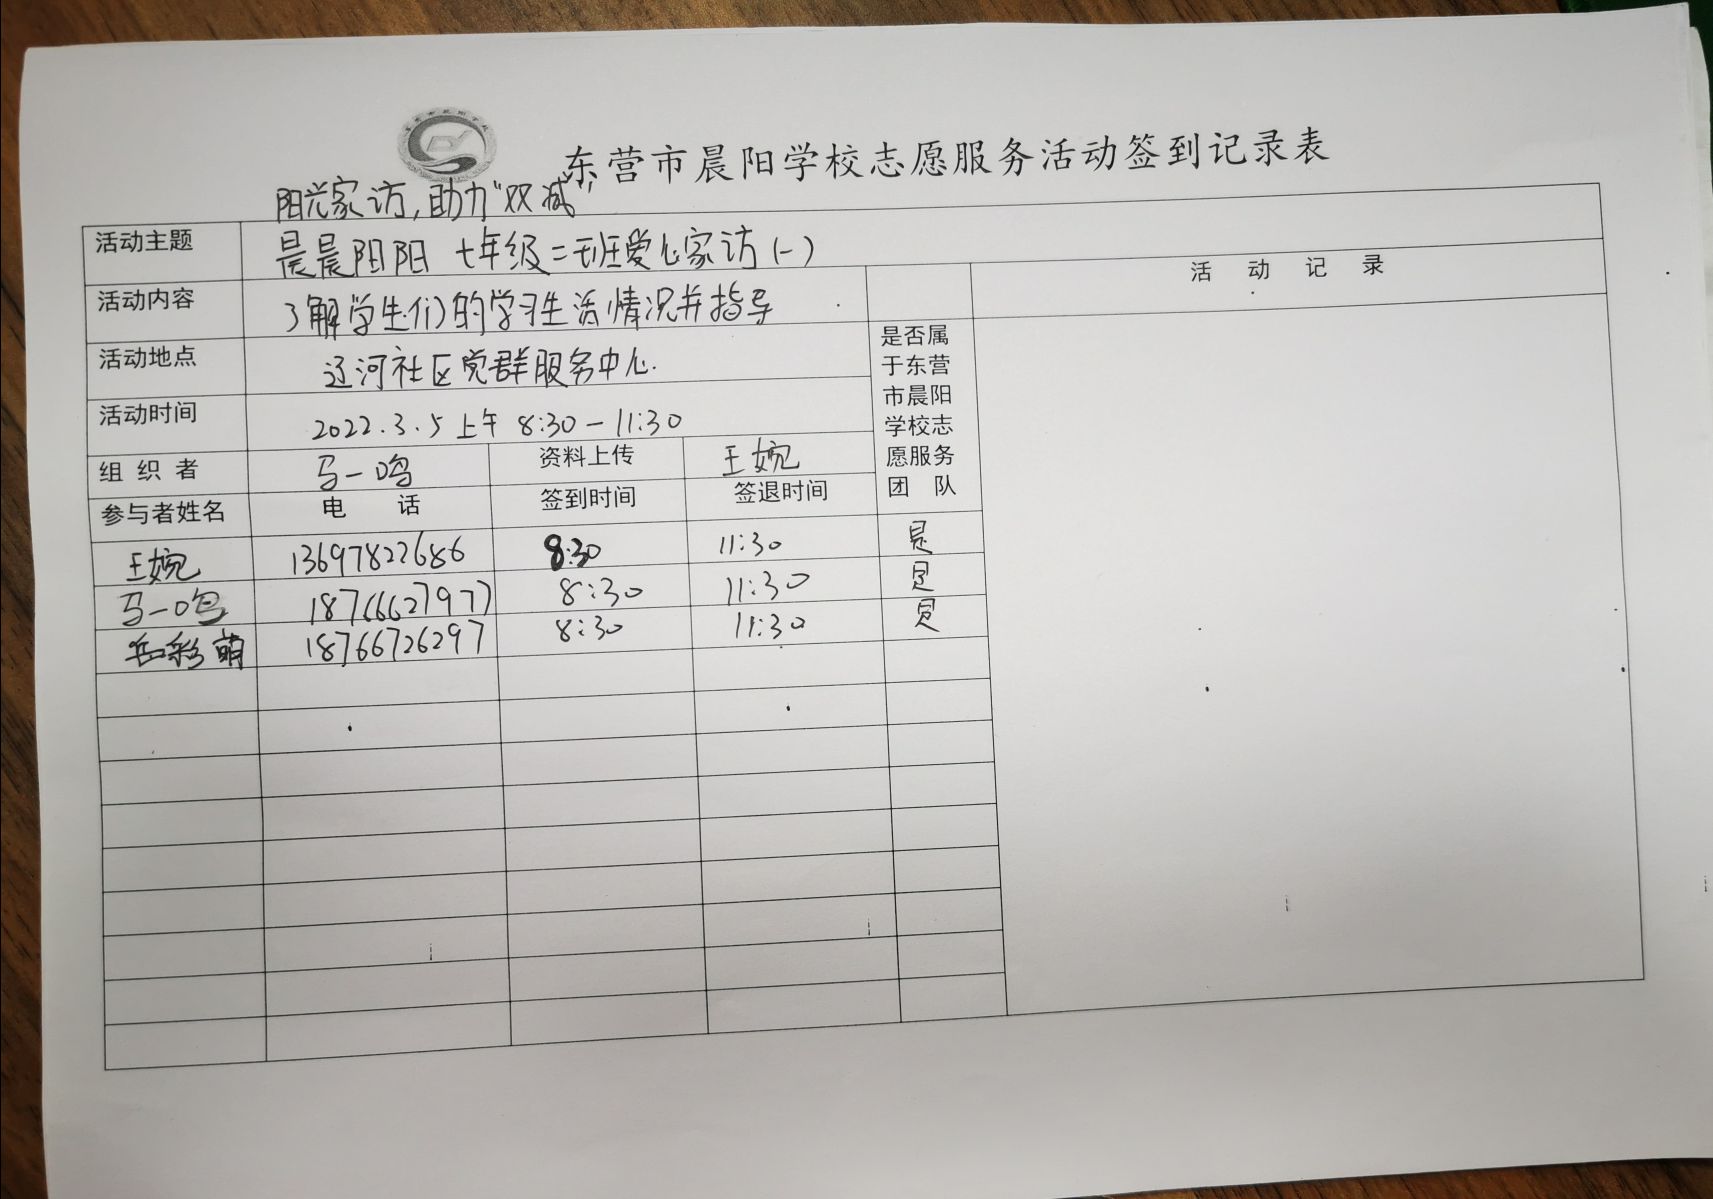 东营市晨阳学校志愿服务活动签到记录表
阳光家访,助力"双减"
活动主题 晨晨阳阳 七年级二班爱心家访(一)
活动内容 了解学生们的学习生活情况并指导 活动记录
活动地点 辽河社区党群服务中心.
活动时间 2022.3.5上午 8:30-11:30
是否属
于东营
市晨阳
学校志
愿服务
团队
组织者 马一鸣 资料上传 王婉
参与者姓名 电话 签到时间 签退时间
王婉 13697822686 8:30 11:30 是
马一鸣 18766627977 8:30 11:30 是
彩萌 18766726297 8:30 11:30 是